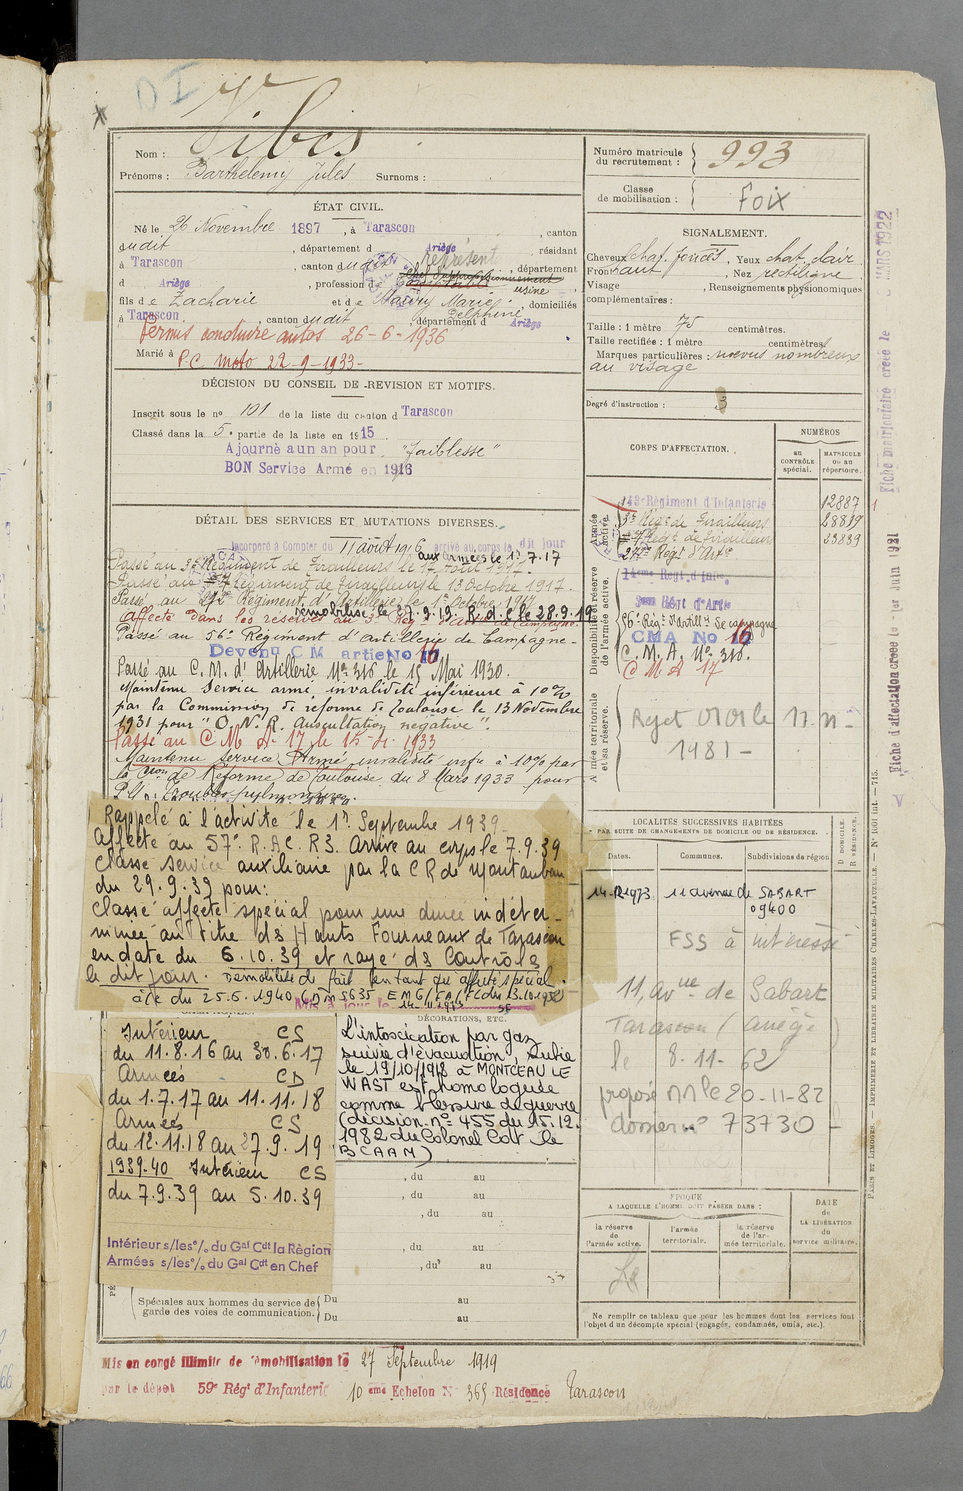 DI
Vibes
Nom :
Prénoms : Barthélemy Jules Surnoms :
Numéro matricule du recrutement : 993
Classe de mobilisation : Foix
ÉTAT CIVIL.
Né le 26 Novembre 1897, à Tarascon, canton
dudit, département d Ariège, résidant
à Tarascon, canton dudit, département
d Ariège, profession de
représentant
usine
fils de Zacharie et de Maury Marie Delphine, domiciliés
à Tarascon, canton dudit, département d Ariège
Permis conduire autos 26-6-1936
Marié à
P.C. moto 22-9-1933-
SIGNALEMENT.
Cheveux chat. foncés, Yeux chat. clair
Front haut, Nez rectiligne
Visage , Renseignements physionomiques
complémentaires :
Taille : 1 mètre 75 centimètres.
Taille rectifiée : 1 mètre centimètres.
Marques particulières : nœvus nombreux
au visage
Degré d'instruction : 3
DÉCISION DU CONSEIL DE REVISION ET MOTIFS.
Inscrit sous le nº 101 de la liste du canton d Tarascon
Classé dans la 5e partie de la liste en 1915
Ajourné a un an pour "faiblesse"
BON Service Armé en 1916
CORPS D'AFFECTATION.
NUMÉROS
AU CONTRÔLE spécial.
MATRICULE OU AU répertoire.
Armée active.
143e Régiment d'Infanterie 12887
3e Régt de Tirailleurs 28819
Régt de Tirailleurs 23839
272e Régt d'Artie
Disponibilité et réserve de l'armée active.
14eme Régt. d'Inf.
Régt d'Artie
56e Régt d'Artillie de campagne
CMA No 16
C.M.A. No 316.
C M A 17
Armée territoriale et sa réserve.
Rejet 0101 le 17-11-
1981-
DÉTAIL DES SERVICES ET MUTATIONS DIVERSES.
Incorporé à Compter du 11 août 1916 arrivé au corps le dit jour
aux armées le 1.7.17
Passé au 3e Régiment de Tirailleurs le 17 août 1917.
Passé au Régiment de Tirailleurs le 13 Octobre 1917.
Passé au 272e Régiment d'Artillerie le 1er Octobre 1918
démobilisé le 27.9.19. R.d.C le 28.9.19
Affecté dans les réserves au
Passé au 56e Régiment d'artillerie de Campagne-
Devenu C M artie No 16
Passé au C.M. d'Artillerie No 316 le 15 Mai 1930.
Maintenu service armé, invalidité inférieure à 10%
par la Commission de réforme de Toulouse le 13 Novembre
1931 pour "O.N.R. Auscultation négative".
Passé au C M A 17 le 15-4-1933
Maintenu Service Armé invalidité infre à 10% par
la Cion de Réforme de Toulouse du 8 Mars 1933 pour
Rappelé à l'activité le 1er Septembre 1939-
Affecté au 57e R.A.C. R3. Arrivé au corps le 7.9.39
Classé service auxiliaire par la CR de Montauban
du 29.9.39 pour:
Classé affecté spécial pour une durée indéter-
minée au titre ds Hauts Fourneaux de Tarascon
en date du 6.10.39 et rayé ds Contrôles
le dit jour. Démobilisé de fait en tant qu'affecté spécial
à/c du 25.6.1940
Intérieur CS
du 11.8.16 au 30.6.17
Armées CD
du 1.7.17 au 11.11.18
Armées CS
du 12.11.18 au 27.9.19
1939.40 Intérieur CS
du 7.9.39 au 5.10.39
Intérieur s/les o/o du Gal Cdt la Région
Armées s/les o/o du Gal Cdt en Chef
DÉCORATIONS, ETC.
L'intoxication par gaz
suivie d'évacuation, subie
le 19/10/1918 à MONTCEAU LE
WAST est homologuée
comme blessure de guerre
(décision nº 455 du 15.12.
1982 du Colonel Cdt le
BCAAM)
, du au
, du au
, du au
, du au
, du au
Spéciales aux hommes du service de garde des voies de communication.
Du au
Du au
LOCALITÉS SUCCESSIVES HABITÉES
PAR SUITE DE CHANGEMENTS DE DOMICILE OU DE RÉSIDENCE.
D. DOMICILE. R. RÉSIDENCE.
Dates. Communes. Subdivisions de région
14-12-1973 11 avenue de SABART
09400
FSS à intéressé
11, avnue de Sabart
Tarascon (Ariège)
le 8-11-62
proposé MM le 20-11-82
dossier nº 73730-
ÉPOQUE
A LAQUELLE L'HOMME DOIT PASSER DANS :
la réserve de l'armée active.
l'armée territoriale.
la réserve de l'armée territoriale.
DATE de LA LIBÉRATION du service militaire.
Ne remplir ce tableau que pour les hommes dont les services font
l'objet d'un décompte spécial (engagés, condamnés, omis, etc.).
Mis en congé illimité de démobilisation le 27 Septembre 1919
par le dépôt 59e Régt d'Infanterie 10eme Echelon No 365 Résidence Tarascon
Fiche matriculaire créée le MARS 1922
Fiche d'affectation créée le 1er Juin 1921
PARIS ET LIMOGES. — IMPRIMERIE ET LIBRAIRIE MILITAIRES CHARLES-LAVAUZELLE.